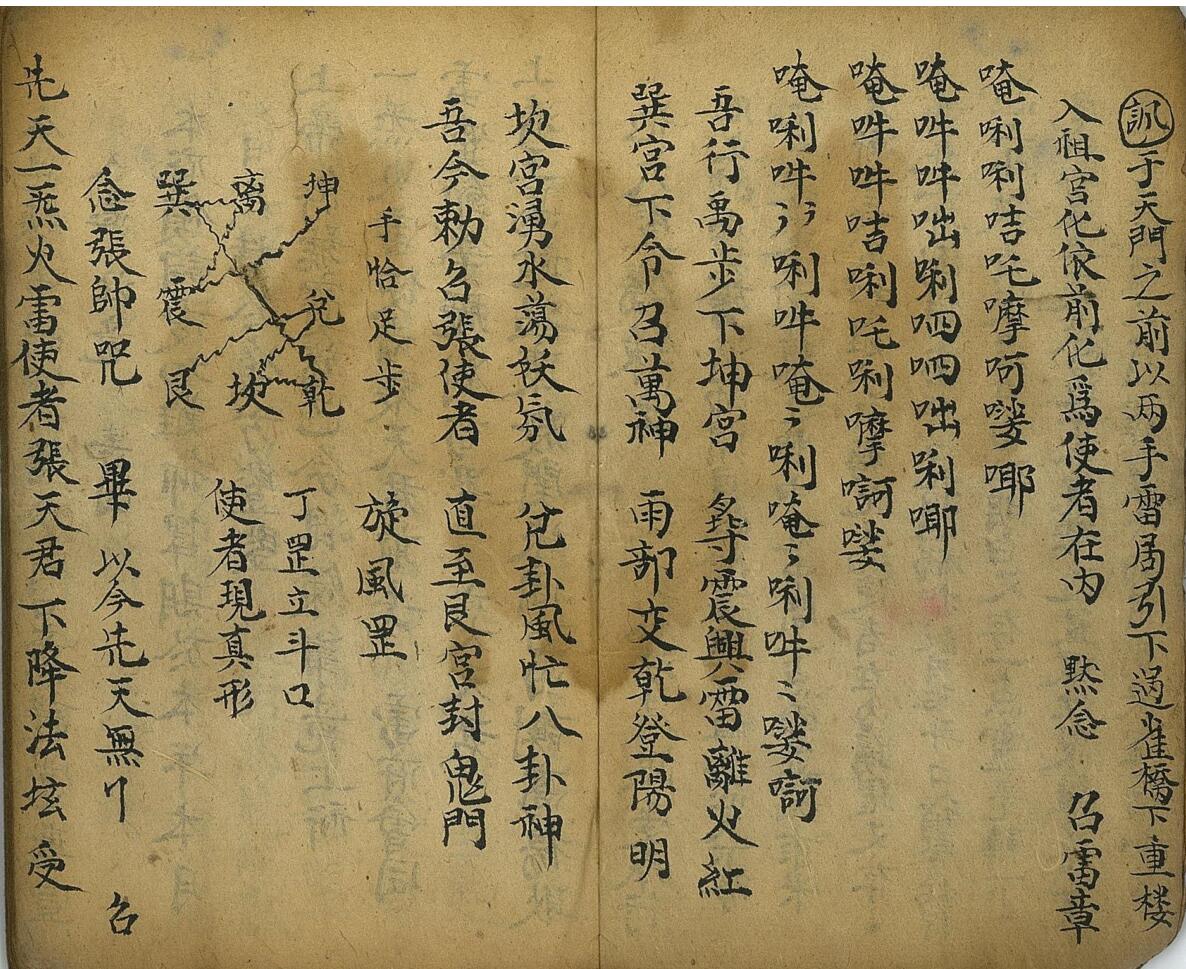 訊于天門之前以两手雷局引下過雀橋下重楼
入祖宫化依前化爲使者在内 黙念 召雷章
唵唎唎吉吒摩呵嘙啣
唵吽吽咄唎呬呬咄唎啣
唵吽吽吉唎吒唎嚤
唵唎吽〻唎吽唵〻唎唵〻唎吽〻
吾行禹步下坤宫 震興雷離火紅
巽宫下令召萬神 雨部交乾登陽明
坎宫湧水蕩妖氛 兌卦風忙八卦神
吾今勅召張使者 直至艮宫封鬼門
手恰足步 旋風罡
坤 兌 乾 丁罡立斗口
离 坎 使者現真形
巽 震 艮
念張帥咒 畢 以今先天無 召
先天一炁火雷使者張天君下降法坛受